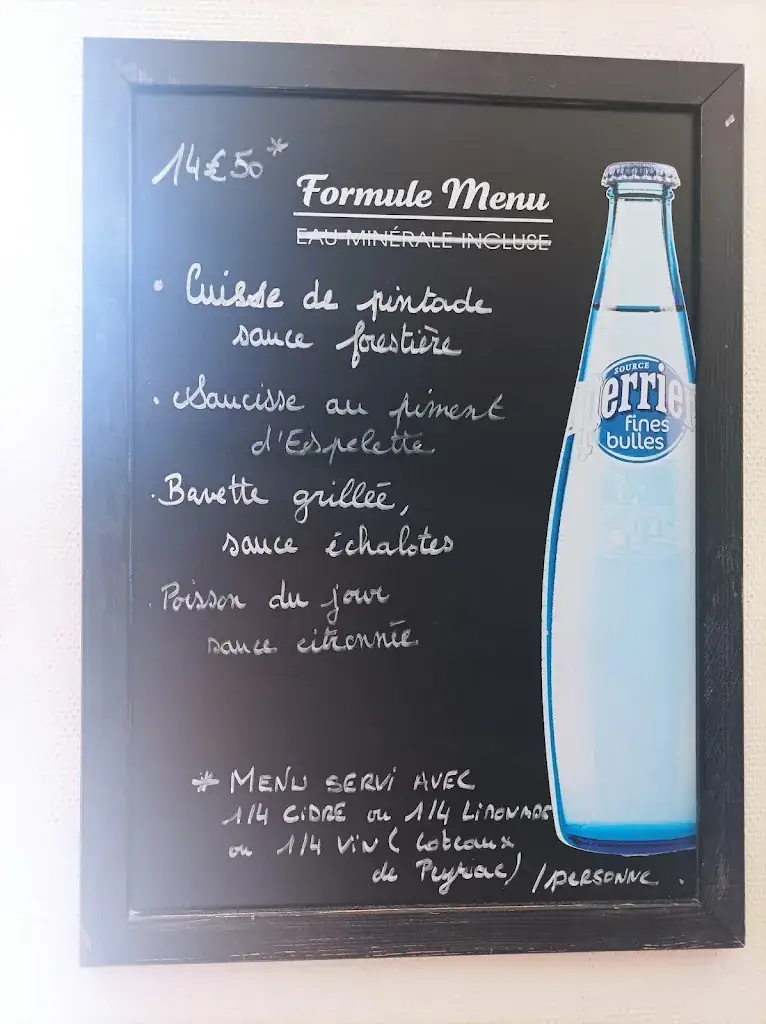 14€50*
Formule Menu
EAU MINÉRALE INCLUSE
• Cuisse de pintade
sauce forestière
• Saucisse au piment
d'Espelette
• Bavette grillée,
sauce échalotes
• Poisson du jour
sauce citronnée
* MENU SERVI AVEC
1/4 CIDRE ou 1/4 LIMONADE
ou 1/4 VIN ( Coteaux
de Peyriac) /PERSONNE.
SOURCE
Perrier
fines
bulles